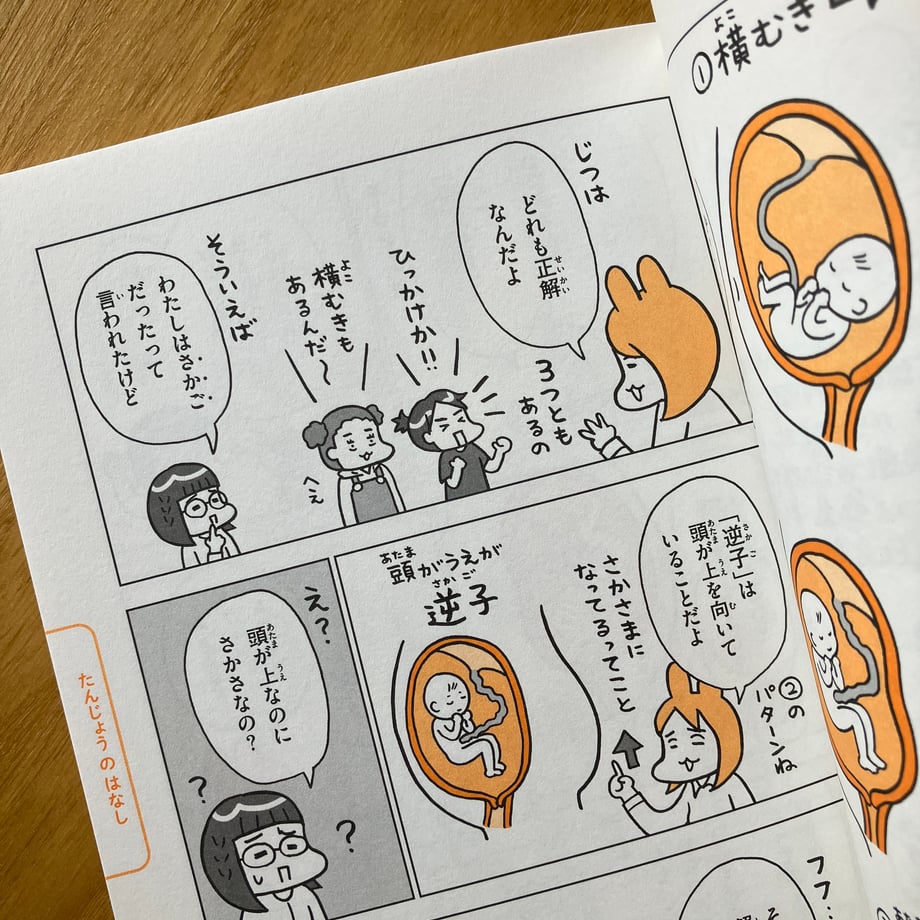 ①横むき
じつは
どれも正解
なんだよ
3つとも
あるの
ひっかけか!!
横むきも
あるんだ〜
へえ
そういえば
わたしはさかご
だったって
言われたけど
「逆子」は
頭が上を向いて
いることだよ
②の
パターンね
さかさまに
なってるってこと
頭がうえが
逆子
え?
頭が上なのに
さかさなの?
?
?
たんじょうのはなし
フフ